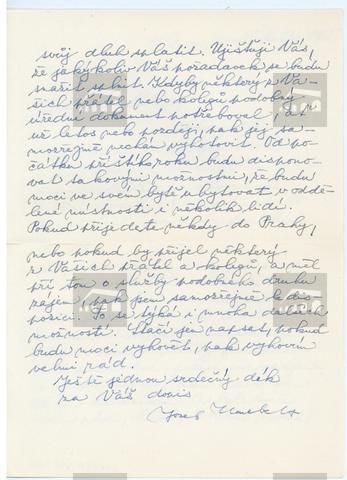 svůj dluh splatit. Ujišťuji Vás,
že jakýkoliv Váš požadavek se budu
snažit splnit. Kdyby některý z Va-
šich přátel nebo kolegů podobný
úřední dokument potřeboval, ať
už letos nebo později, pak jej sa-
mozřejmě nechám vyhotovit. Od po-
čátku příštího roku budu dispono-
vat takovými možnostmi, že budu
moci ve svém bytě ubytovat v oddě-
lené místnosti i několik lidí.
Pokud přijedete někdy do Prahy,
nebo pokud by přijel některý
z Vašich přátel a kolegů, a měl
při tom o služby podobného druhu
zájem, pak jsem samozřejmě k dis-
pozici. To se týká i mnoha dalších
možností. Stačí jen napsat, pokud
budu moci vyhovět, pak vyhovím
velmi rád.
Ještě jednou srdečný dík
za Váš dopis
Josef